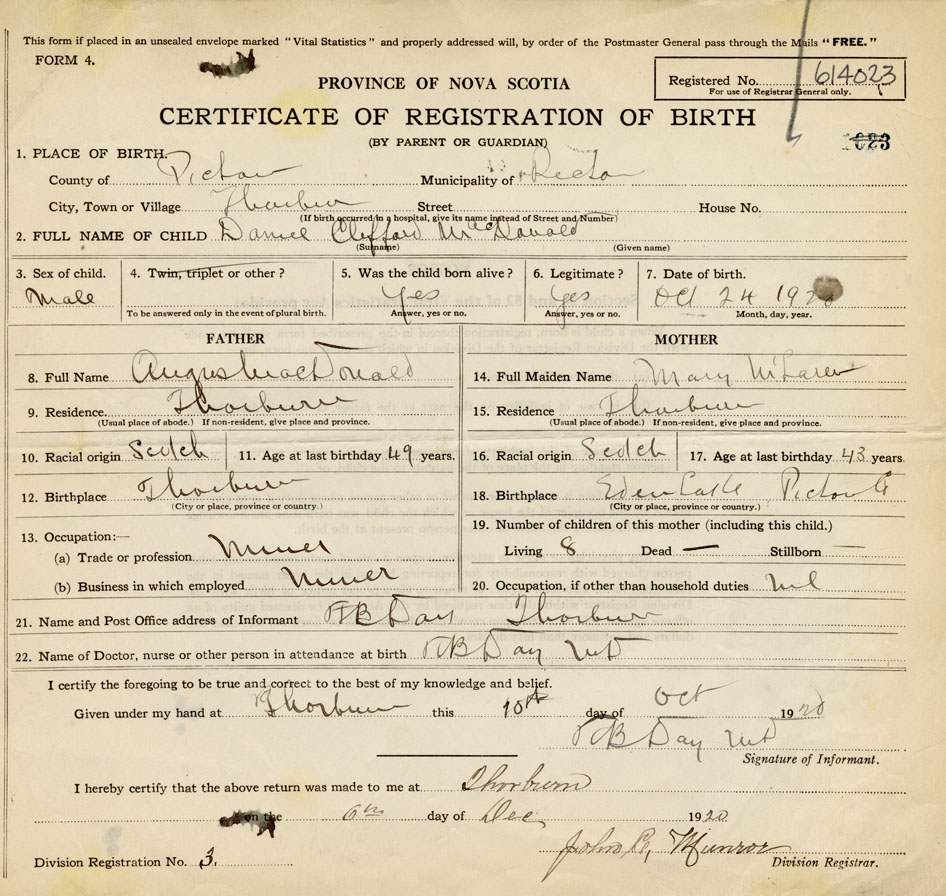 This form if placed in an unsealed envelope marked "Vital Statistics" and properly addressed will, by order of the Postmaster General pass through the Mails "FREE."
FORM 4.
PROVINCE OF NOVA SCOTIA
Registered No. 614023
For use of Registrar General only.
CERTIFICATE OF REGISTRATION OF BIRTH
(BY PARENT OR GUARDIAN)
1. PLACE OF BIRTH.
County of Pictou Municipality of Pictou
City, Town or Village Thorburn Street House No.
(If birth occurred in a hospital, give its name instead of Street and Number)
2. FULL NAME OF CHILD Daniel Clifford MacDonald
(Surname) (Given name)
3. Sex of child. 4. Twin, triplet or other? 5. Was the child born alive? 6. Legitimate? 7. Date of birth.
Male Yes Yes Oct 24 1920
To be answered only in the event of plural birth. Answer, yes or no. Answer, yes or no. Month, day, year.
FATHER
8. Full Name Angus MacDonald
9. Residence. Thorburn
(Usual place of abode.) If non-resident, give place and province.
10. Racial origin Scotch 11. Age at last birthday 49 years.
12. Birthplace Thorburn
(City or place, province or country.)
13. Occupation:—
(a) Trade or profession Miner
(b) Business in which employed Miner
MOTHER
14. Full Maiden Name Mary McLaren
15. Residence Thorburn
(Usual place of abode.) If non-resident, give place and province.
16. Racial origin Scotch 17. Age at last birthday 43 years.
18. Birthplace Eden Lake Pictou Co
(City or place, province or country.)
19. Number of children of this mother (including this child.)
Living 8 Dead — Stillborn —
20. Occupation, if other than household duties
21. Name and Post Office address of Informant B Day Thorburn
22. Name of Doctor, nurse or other person in attendance at birth B Day MD
I certify the foregoing to be true and correct to the best of my knowledge and belief.
Given under my hand at Thorburn this 10th day of Oct 1920
B Day MD
Signature of Informant.
I hereby certify that the above return was made to me at Thorburn
on the 6th day of Dec. 1920
John R. Munroe
Division Registration No. 3. Division Registrar.